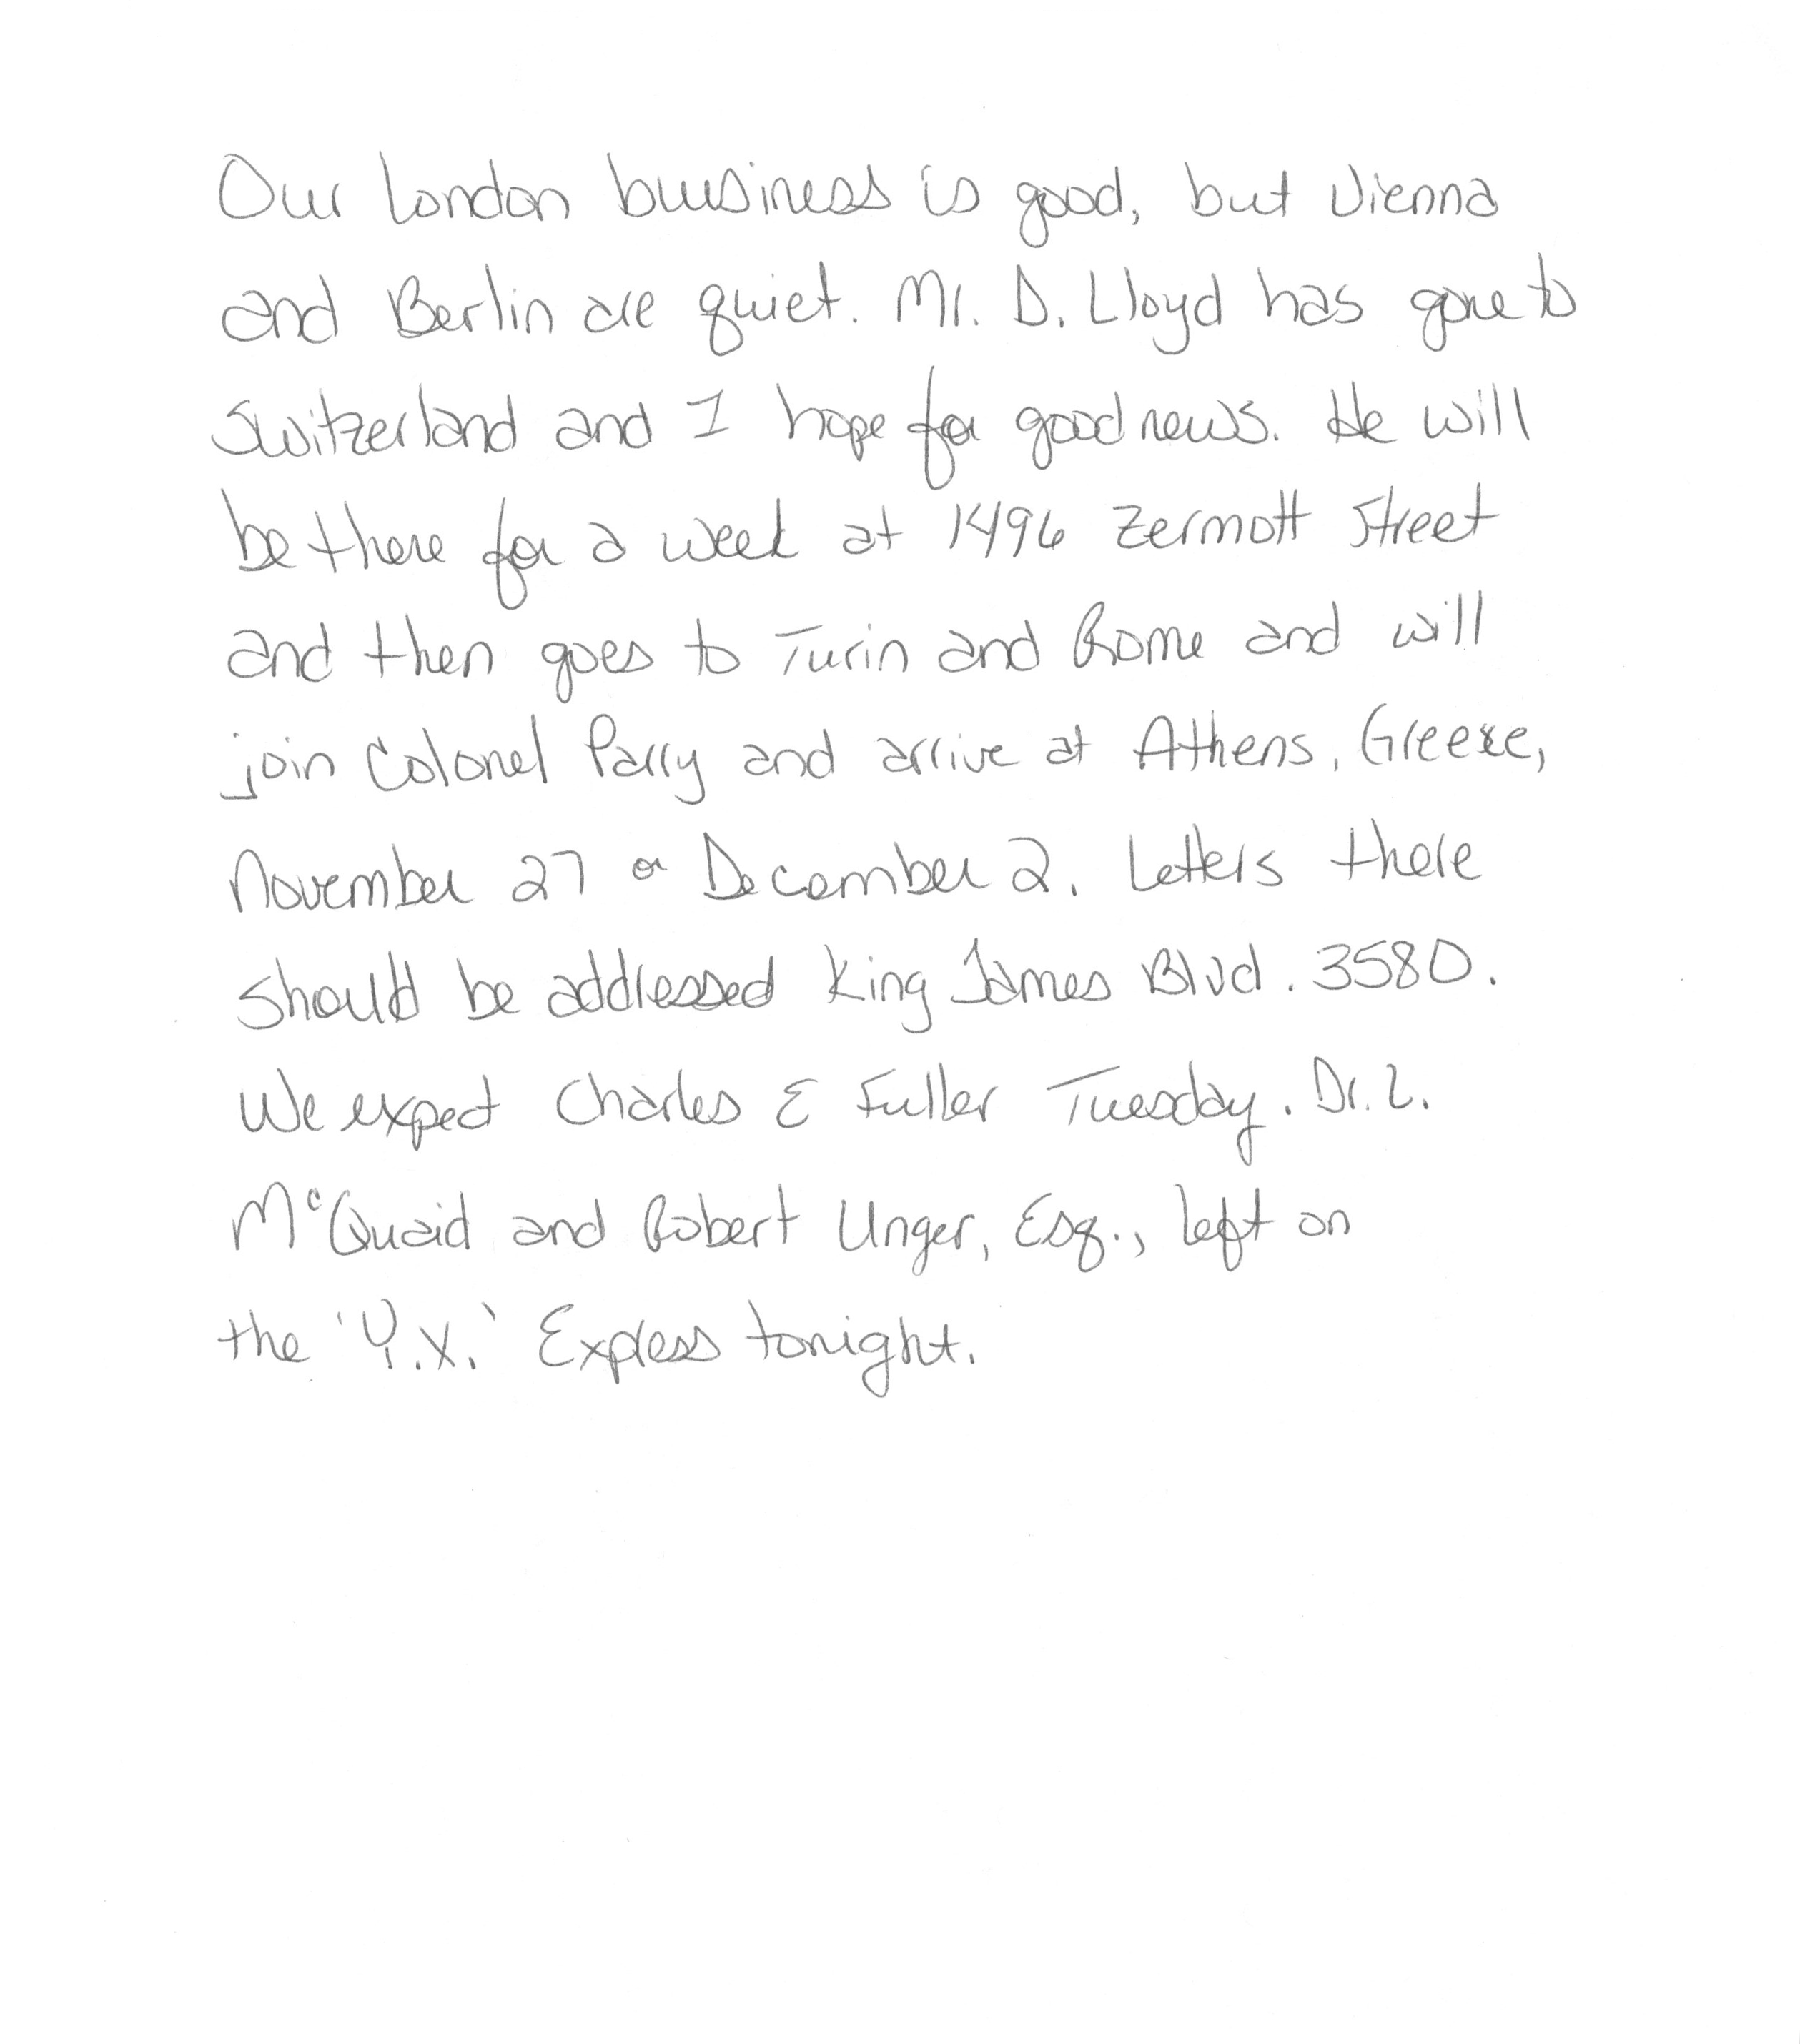 Our London buusiness is good, but Vienna
and Berlin are quiet. Mr. D. Lloyd has gone to
Switzerland and I hope for good news. He will
be there for a week at 1496 Zermott Street
and then goes to Turin and Rome and will
join Colonel Parry and arrive at Athens, Greece,
November 27 or December 2. Letters there
should be addressed King James Blvd. 3580.
We expect Charles E Fuller Tuesday. Dr. L.
McQuaid and Robert Unger, Esq., left on
the 'Y.X.' Express tonight.